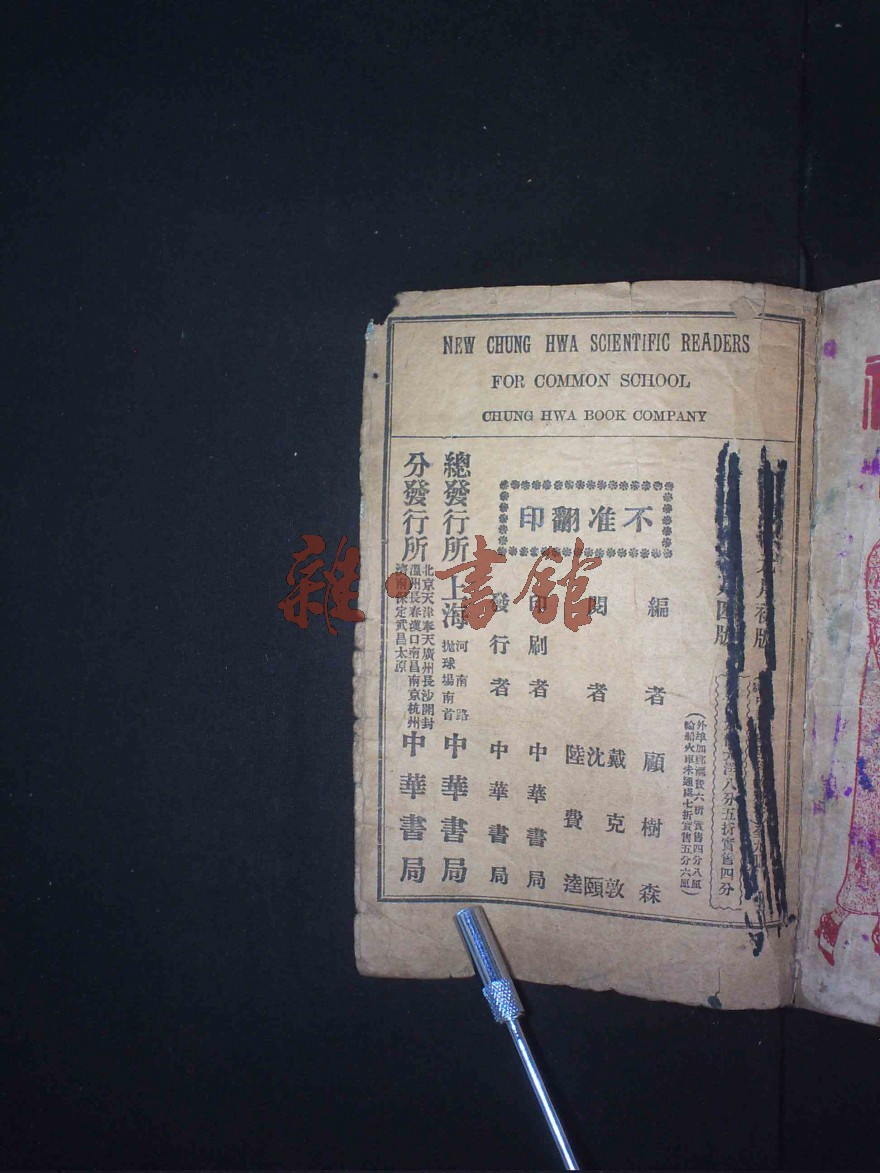 NEW CHUNG HWA SCIENTIFIC READERS
FOR COMMON SCHOOL
CHUNG HWA BOOK COMPANY
洋八分五折實售四分
外埠加郵滙費六折實售四分八厘
輪船火車未通處七折實售五分六厘
不准翻印
編者 顧樹森
閱者 戴克敦 沈頤 陸費逵
印刷者 中華書局
發行者 中華書局
總發行所 上海 河南路拋球場南首 中華書局
分發行所 北京天津奉天廣州長沙開封 溫州長春漢口南昌南京杭州 濟南保定武昌太原 中華書局
雜·書館